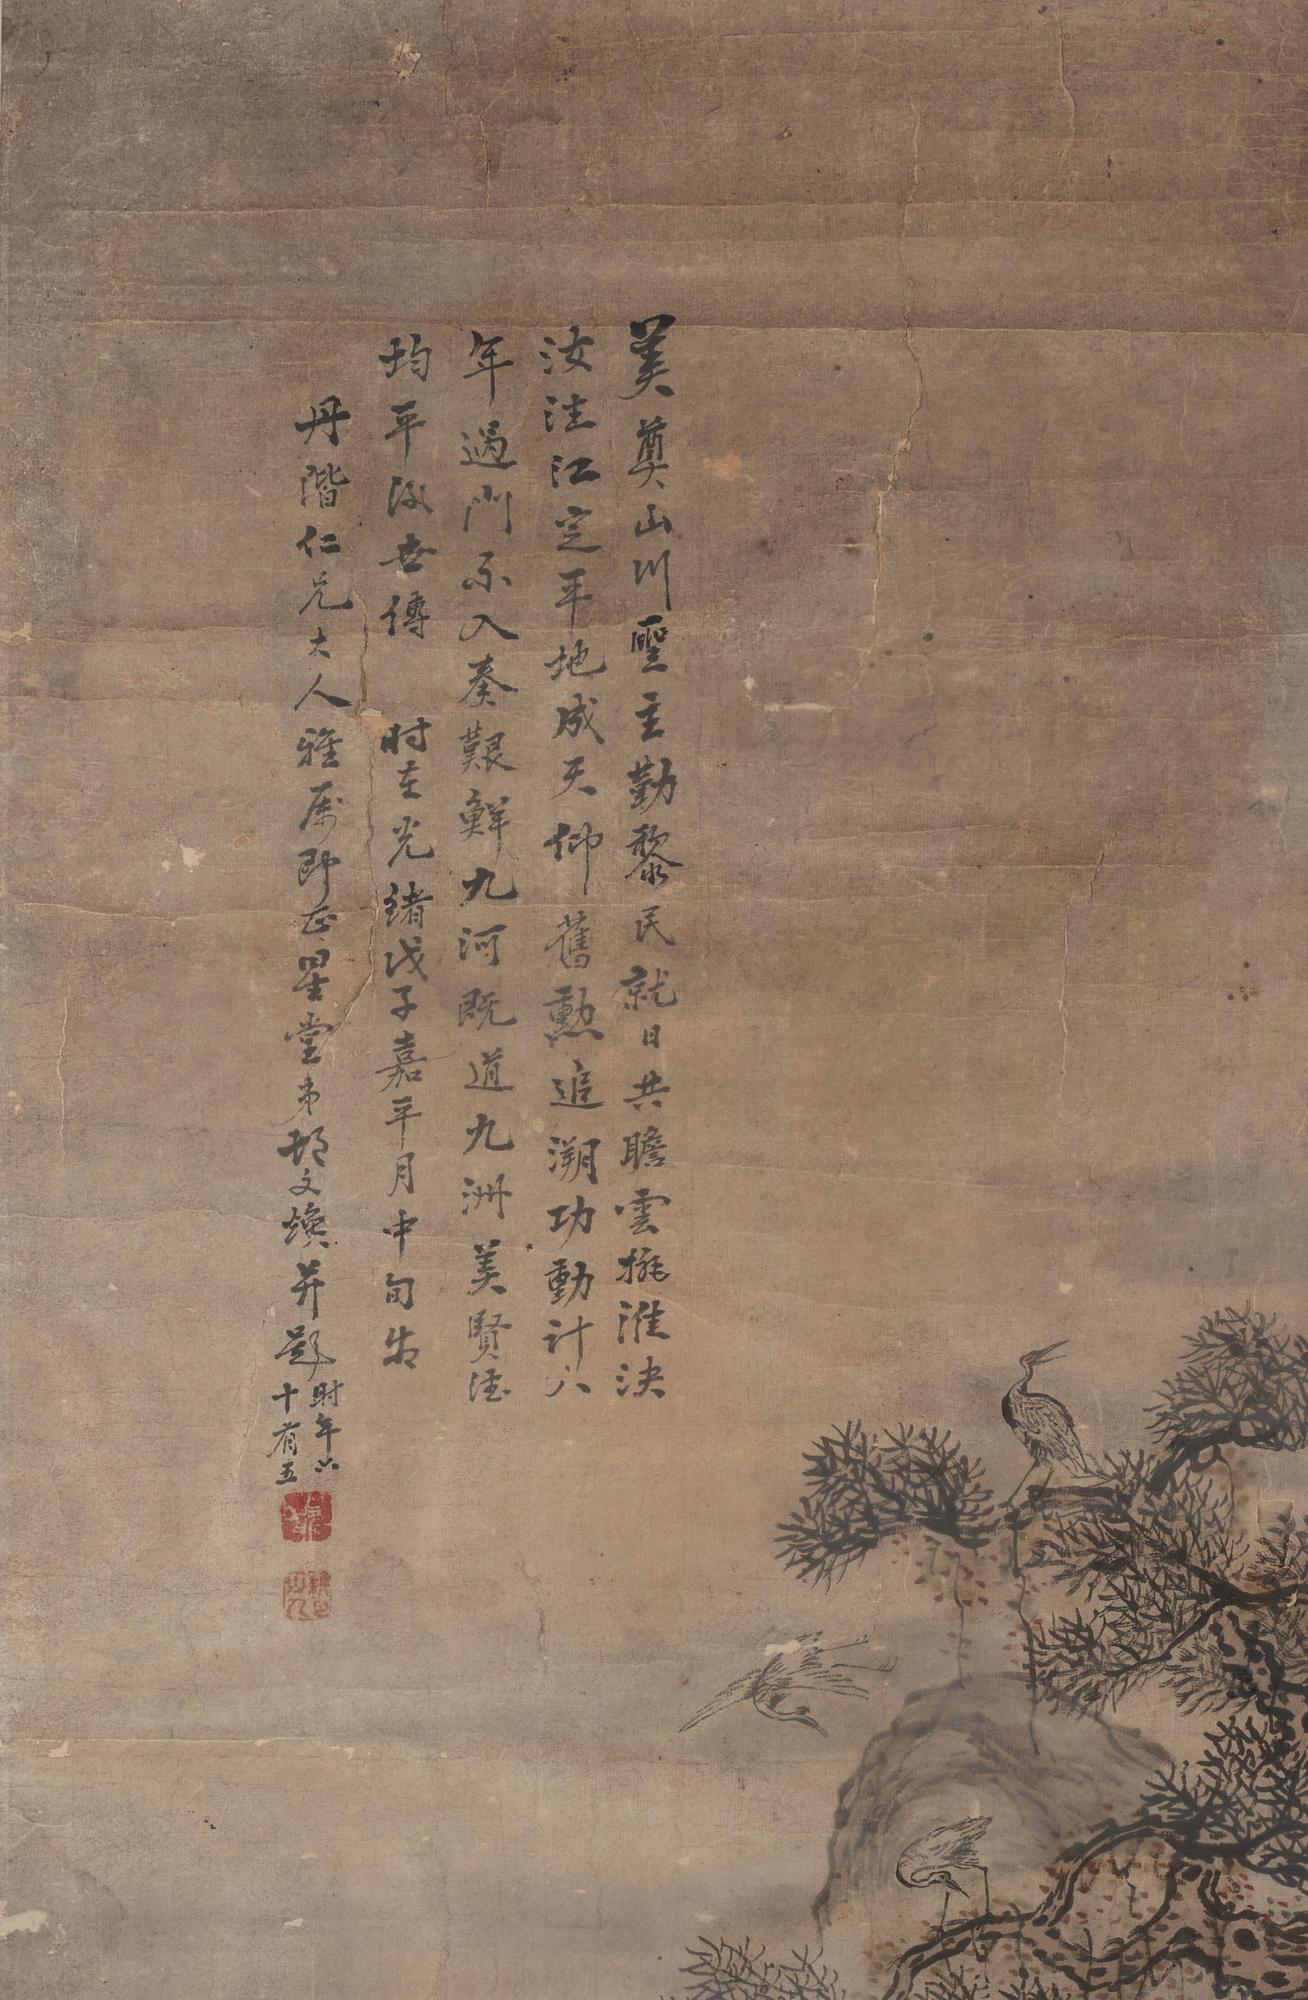 美奠山川聖主勤黎民就日共瞻雲排淮決
汝注江定平地成天仰舊勳追溯功動計八
年過門不入奏艱鮮九河既道九洲美賢德
均平後世傳 时在光緒戊子嘉平月中旬
丹階仁兄大人雅属即正星堂弟胡文煥并題
时年六
十有五